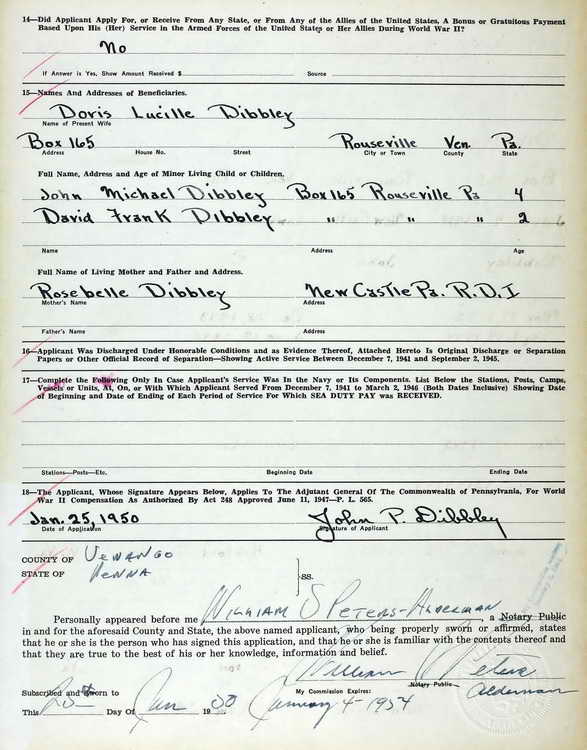 14—Did Applicant Apply For, or Receive From Any State, or From Any of the Allies of the United States, A Bonus or Gratuitous Payment
Based Upon His (Her) Service in the Armed Forces of the United States or Her Allies During World War II?
No
If Answer is Yes, Show Amount Received $ Source
15—Names And Addresses of Beneficiaries.
Doris Lucille Dibbley
Name of Present Wife
Box 165 Rouseville Ven. Pa.
Address House No. Street City or Town County State
Full Name, Address and Age of Minor Living Child or Children.
John Michael Dibbley Box 165 Rouseville Pa 4
David Frank Dibbley " " " 2
Name Address Age
Full Name of Living Mother and Father and Address.
Rosebelle Dibbley New Castle Pa. R.D.1
Mother's Name Address
Father's Name Address
16—Applicant Was Discharged Under Honorable Conditions and as Evidence Thereof, Attached Hereto Is Original Discharge or Separation
Papers or Other Official Record of Separation—Showing Active Service Between December 7, 1941 and September 2, 1945.
17—Complete the Following Only In Case Applicant's Service Was in the Navy or Its Components. List Below the Stations, Posts, Camps,
Vessels or Units, At, On, or With Which Applicant Served From December 7, 1941 to March 2, 1946 (Both Dates Inclusive) Showing Date
of Beginning and Date of Ending of Each Period of Service For Which SEA DUTY PAY was RECEIVED.
Stations—Posts—Etc. Beginning Date Ending Date
18—The Applicant, Whose Signature Appears Below, Applies To The Adjutant General Of The Commonwealth of Pennsylvania, For World
War II Compensation As Authorized By Act 248 Approved June 11, 1947—P. L. 565.
Jan. 25, 1950 John P. Dibbley
Date of Application Signature of Applicant
COUNTY OF Venango
STATE OF Penna
SS.
Personally appeared before me William S Peters-Alderman, a Notary Public
in and for the aforesaid County and State, the above named applicant, who being properly sworn or affirmed, states
that he or she is the person who has signed this application, and that he or she is familiar with the contents thereof and
that they are true to the best of his or her knowledge, information and belief.
William S Peters
Subscribed and sworn to My Commission Expires: Notary Public Alderman
This 25 Day Of Jan 1950 January 4-1954